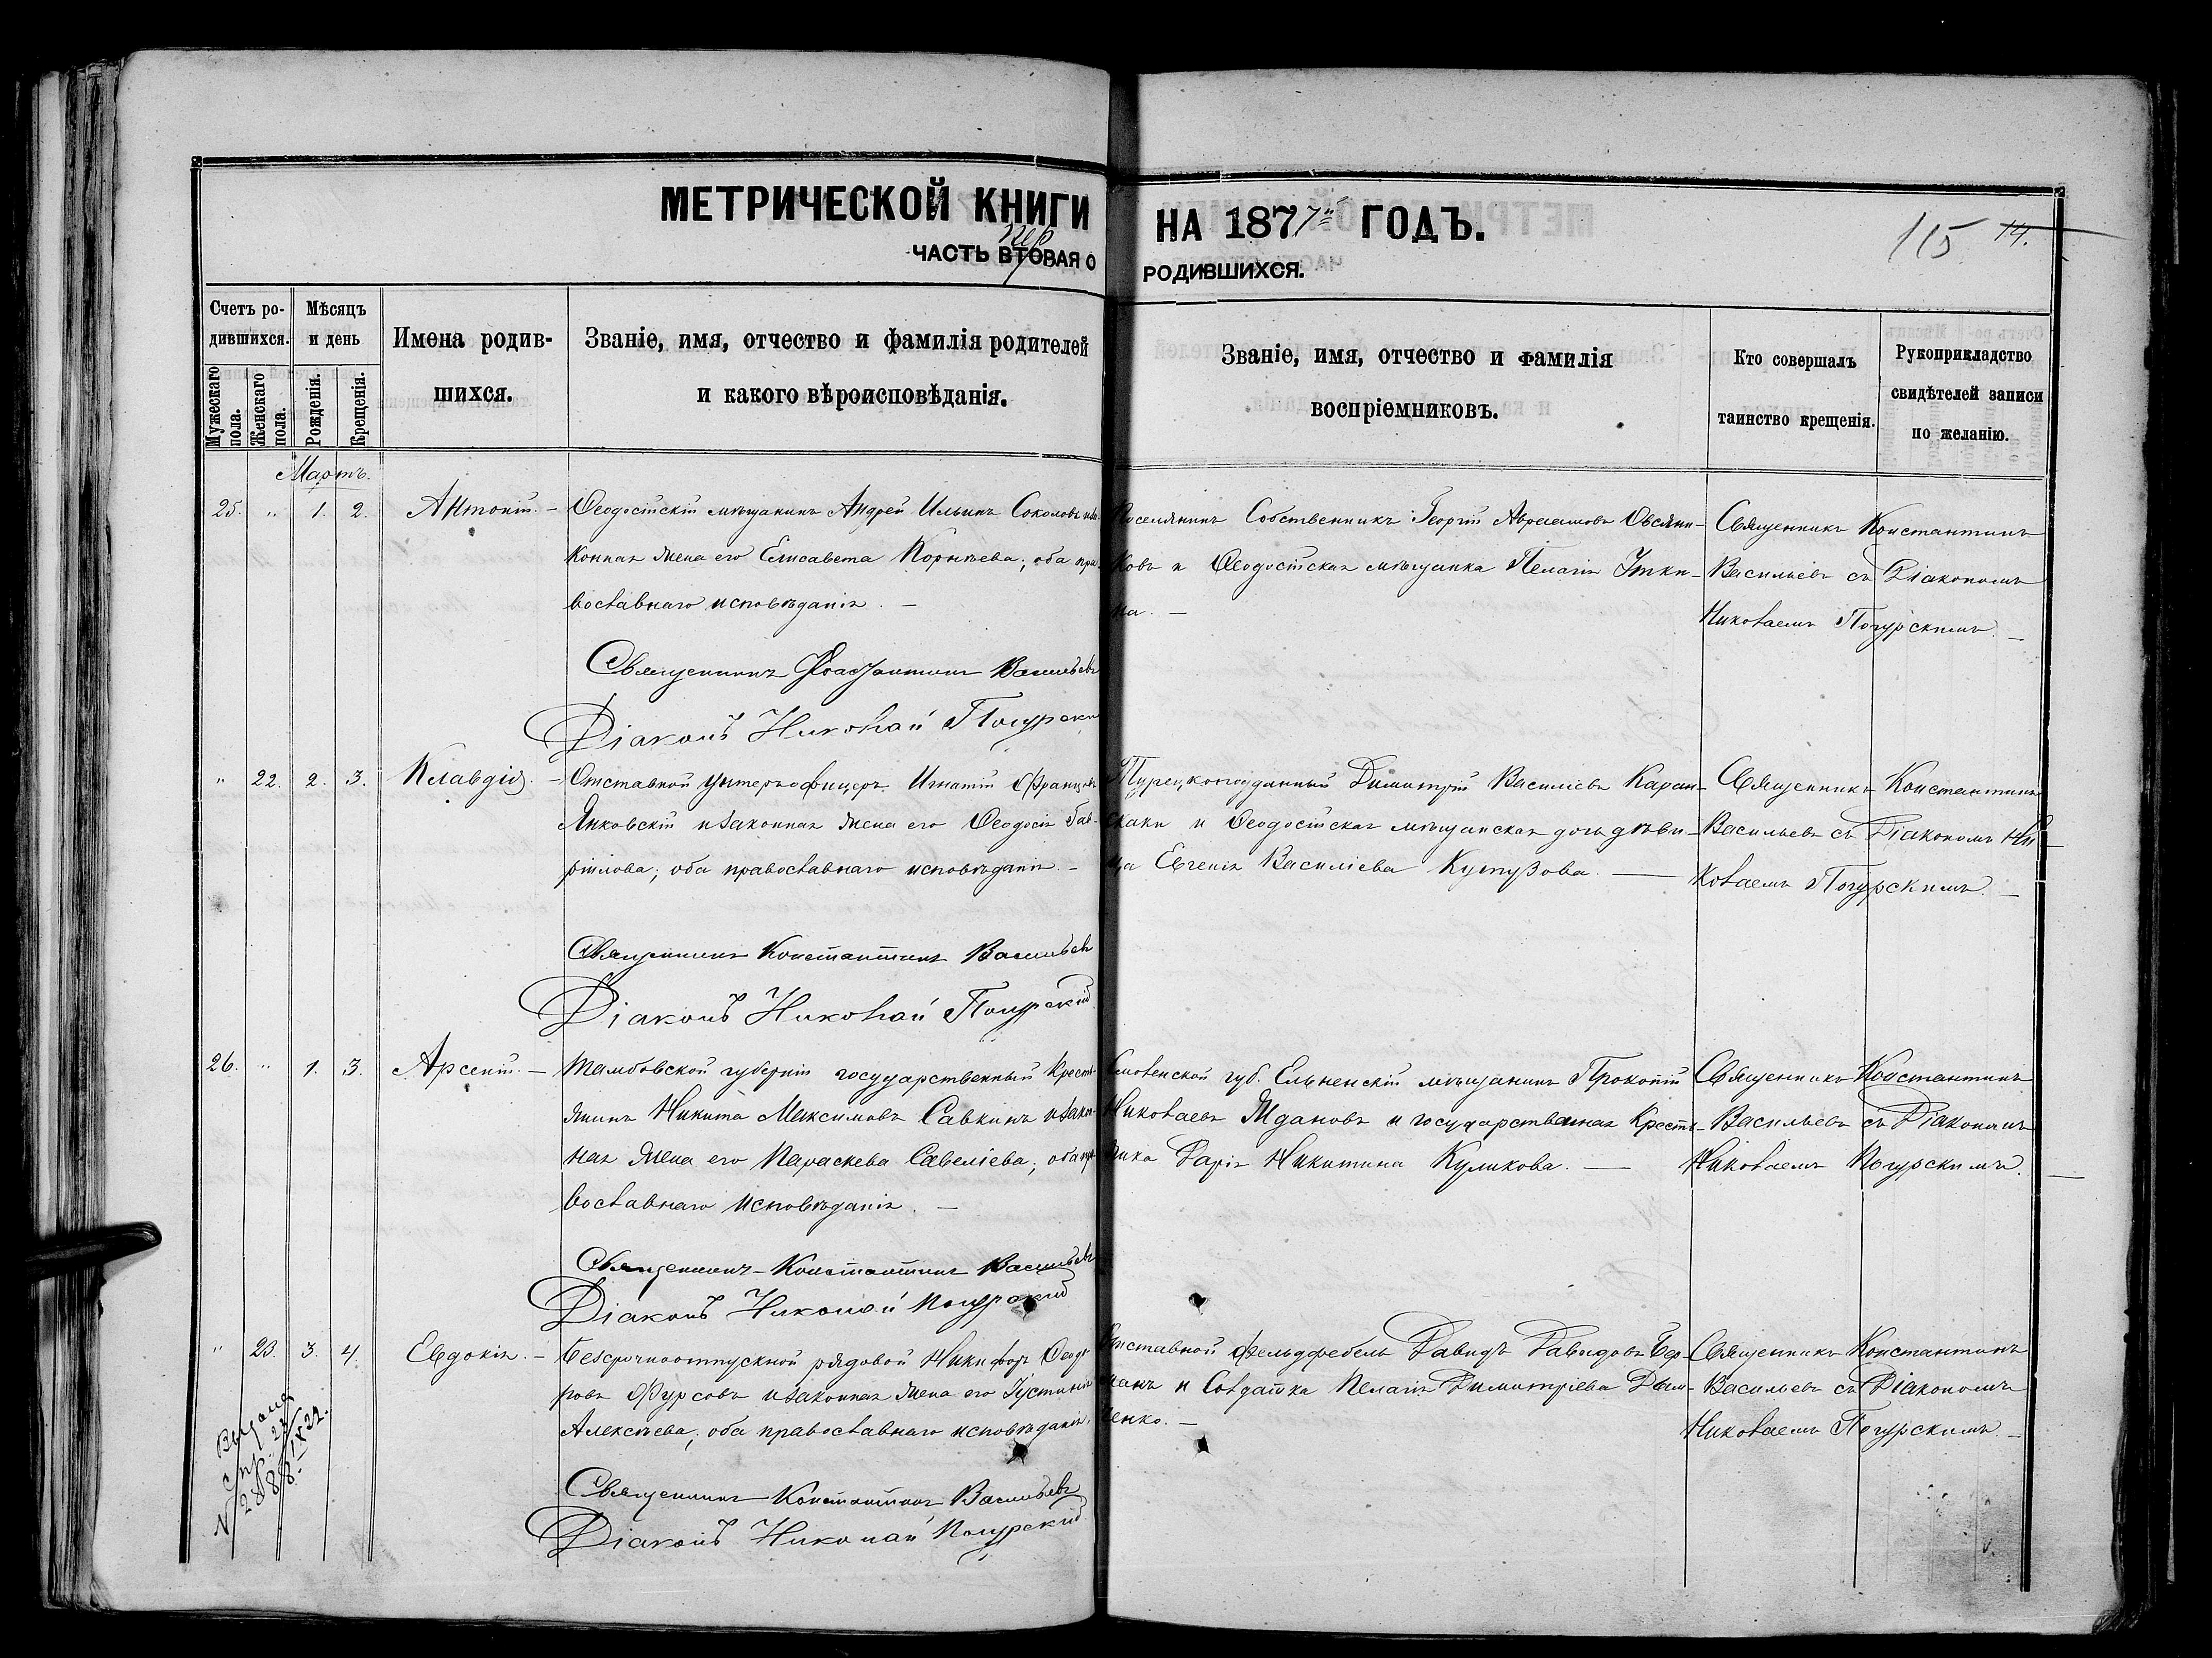 МЕТРИЧЕСКОЙ КНИГИ НА 1877й ГОДЪ.
ЧАСТЬ ВТОРАЯ О РОДИВШИХСЯ.
пер
115 14.
Счетъ родившихся.
Мужескаго пола.
Женскаго пола.
Мѣсяцъ и день
Рожденія.
Крещенія.
Имена родившихся.
Званіе, имя, отчество и фамилія родителей
и какого вѣроисповѣданія.
Званіе, имя, отчество и фамилія
воспріемниковъ.
Кто совершалъ
таинство крещенія.
Рукоприкладство
свидѣтелей записи
по желанію.
Мартъ.
25. " 1. 2. Антоній. – Ѳеодосійскій мѣщанинъ Андрей Ильинъ Соколовъ и за-
конная жена его Елисавета Корнѣева; оба пра-
вославнаго исповѣданія. –
Поселянинъ Собственникъ Георгій Авраамовъ Овсяни-
ковъ и Ѳеодосійская мѣщанка Пелагія Утки-
на. –
Священникъ Константинъ
Васильевъ съ Діакономъ
Николаемъ Погурскимъ. –
Священникъ Константинъ Васильевъ
Діаконъ Николай Погурскій
" 22. 2. 3. Клавдія. – Отставной унтеръ-офицеръ Игнатій Францовъ
Янковскій и законная жена его Ѳеодосія Гав-
ріилова; оба православнаго исповѣданія. –
Турецкоподданный Димитрій Василіевъ Каран-
жаки и Ѳеодосійская мѣщанская дочь дѣви-
ца Евгенія Василіева Кутузова. –
Священникъ Константинъ
Васильевъ съ Діакономъ Ни-
колаемъ Погурскимъ. –
Священникъ Константинъ Васильевъ
Діаконъ Николай Погурскій
26. " 1. 3. Арсеній. – Тамбовской губерніи государственный Кресть-
янинъ Никита Максимовъ Савкинъ и закон-
ная жена его Параскева Савеліева; оба пра-
вославнаго исповѣданія. –
Смоленской губ. Ельненскій мѣщанинъ Прокопій
Николаевъ Ждановъ и государственная Кресть-
янка Дарія Никитина Куликова. –
Священникъ Константинъ
Васильевъ съ Діакономъ
Николаемъ Погурскимъ. –
Священникъ Константинъ Васильевъ
Діаконъ Николай Погурскій
" 23. 3. 4. Евдокія. – Безсрочноотпускной рядовой Никифоръ Ѳеодо-
ровъ Фурсовъ и законная жена его Іустинія
Алексѣева; оба православнаго исповѣданія.
Отставной фельдфебель Давидъ Давидовъ Бер-
манъ и Солдатка Пелагія Димитріева Дем-
ченко. –
Священникъ Константинъ
Васильевъ съ Діакономъ
Николаемъ Погурскимъ. –
Священникъ Константинъ Васильевъ
Діаконъ Николай Погурскій
Выдана
спр.